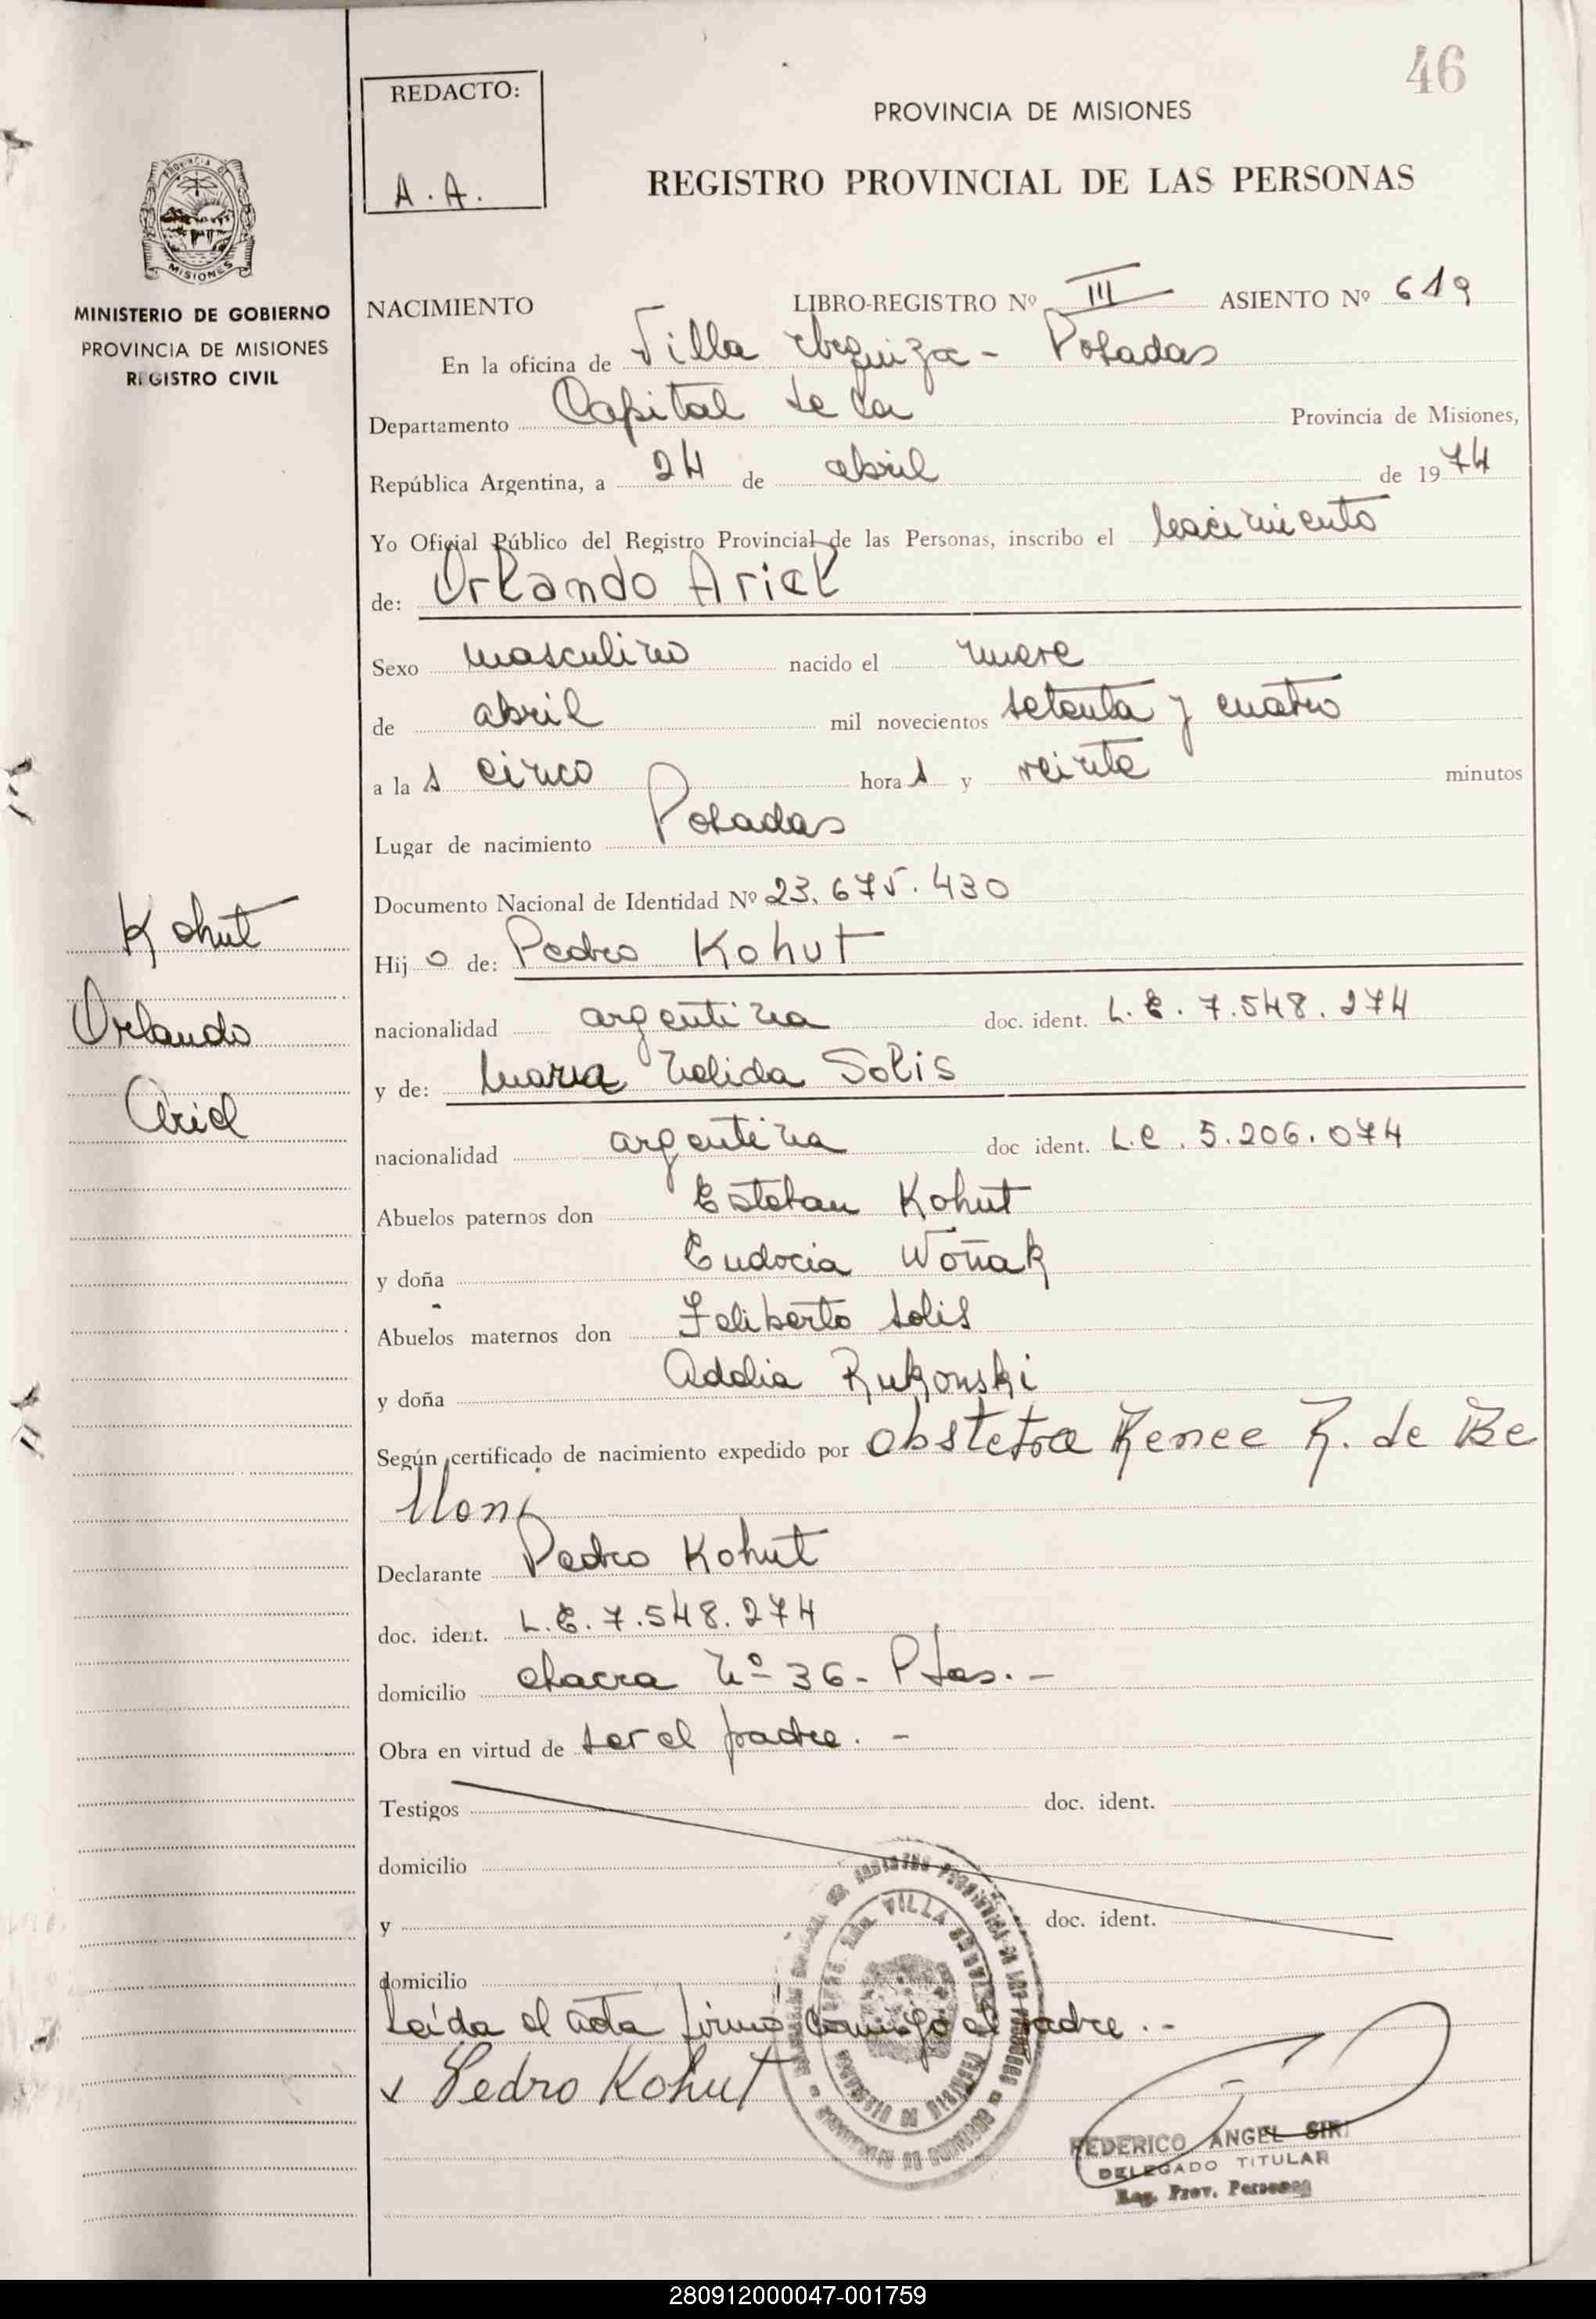 46
REDACTO:
A. A.
PROVINCIA DE MISIONES
REGISTRO PROVINCIAL DE LAS PERSONAS
MISIONES
MINISTERIO DE GOBIERNO
PROVINCIA DE MISIONES
REGISTRO CIVIL
NACIMIENTO LIBRO-REGISTRO Nº III ASIENTO Nº 619
En la oficina de Villa Urquiza - Posadas
Departamento Capital de la Provincia de Misiones,
República Argentina, a 24 de abril de 1974
Yo Oficial Público del Registro Provincial de las Personas, inscribo el Nacimiento
de: Orlando Ariel
Sexo masculino nacido el nueve
de abril mil novecientos setenta y cuatro
a las cinco horas y veinte minutos
Lugar de nacimiento Posadas
Documento Nacional de Identidad Nº 23.675.430
Hijo de: Pedro Kohut
nacionalidad argentina doc. ident. L.E. 7.548.274
y de: Maria Nelida Solis
nacionalidad argentina doc ident. L.C. 5.206.074
Abuelos paternos don Esteban Kohut
y doña Eudocia Woñak
Abuelos maternos don Feliberto Solis
y doña Adelia Rukonski
Según certificado de nacimiento expedido por obstetra Renee R. de Be
lloni
Declarante Pedro Kohut
doc. ident. L.E. 7.548.274
domicilio chacra Nº 36 - Pdas. -
Obra en virtud de ser el padre. -
Testigos doc. ident.
domicilio
y doc. ident.
domicilio
Leida el acta firmó conmigo el padre. -
x Pedro Kohut
Kohut
Orlando
Ariel
VILLA
FEDERICO ANGEL SIRI
DELEGADO TITULAR
Reg. Prov. Personas
280912000047-001759